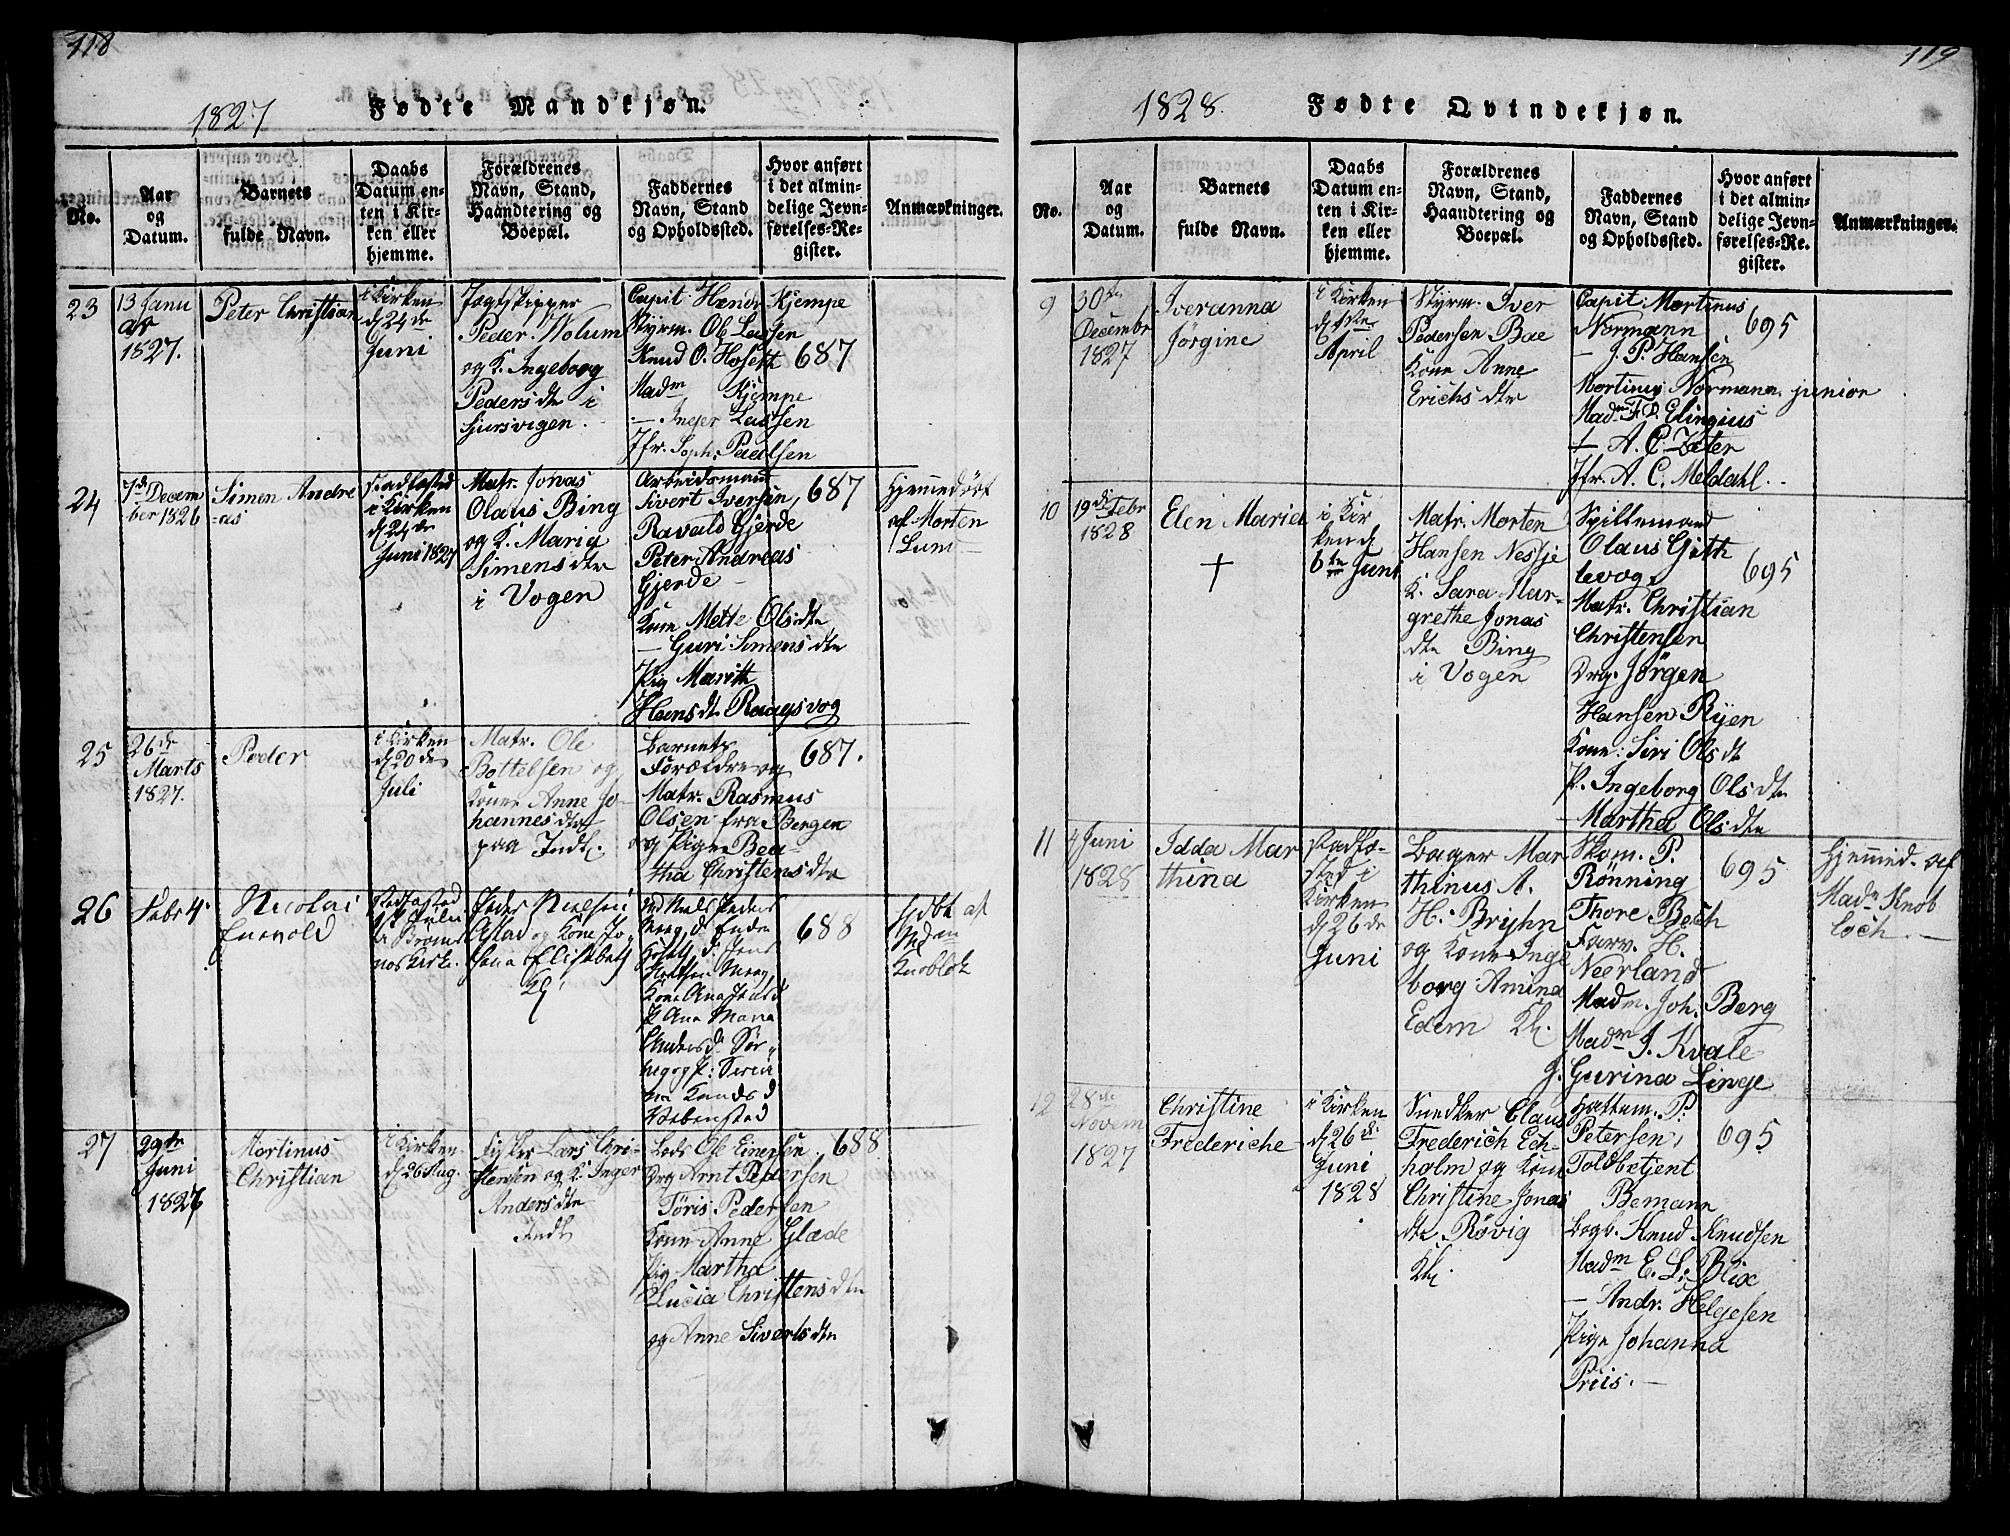 118
1827 Fødte Mandkjøn.
No.
Aar og Datum.
Barnets fulde Navn.
Daabs Datum enten i Kirken eller hjemme.
Forældrenes Navn, Stand, Haandtering og Boepæl.
Faddernes Navn, Stand og Opholdssted.
Hvor anført i det almindelige Jevnførelses-Register.
Anmærkninger.
23
13 Janu
ar
1827.
Peter Christian
i Kirken
d 24de
Juni
Jagtskipper
Peder Nolum
og K. Ingeborg
Peders dtr i
Sjursvigen.
Capit Kjempe
Styrm. Ol Lassen
Knud O. Hoseth
Madm Kjempe
— Inger Lassen
Jfr. Soph. Paulsen
687
24
7de Decem
ber 1826
Simen Andre
as
Stadfæsted
i Kirken
d 24de
Juni 1827
Matr. Jonas
Olaus Bing
og K. Maria
Simens dtr
i Vogen
Arbeidsmand
Sivert Iversen
Ravald Gjerde
Peter Andreas
Gjerde
Kone Mette Ols dtr
— Guri Simens dtr
Pig Marith
Hans dtr Raagsvog
687
Hjemmedøbt
af Morten
Lum
25
26de
Marts
1827.
Peder
i Kirken
d 20de
Juli
Matr. Ole
Bottelsen og
Kone Anne Jo
hannes dtr
paa Indl.
Barnets
Forældre og
Matr. Rasmus
Olsen fra Bergen
og Pigen Bea
tha Christens dtr
687.
26
Febr 4
Nicolai
Enevold
Stadfæsted
Kirke.
Peder Nielsen
og Kone Jo
Elisabeth
Kl
Niels Peders
Kone Ana
P Ana Maria
Anders d
688
af
Mdm
Knobloch
27
29de
Juni
1827
Mortinus
Christian
i Kirken
d 26 Aug.
Fisker Lars Chri
stensen og K. Inger
Anders dtr
Indl
Lods Ole Einersen
Drg Arnt Pedersen
Tøris Pedersen
Kone Anne Glæde
Pig Martha
Lucia Christens dtr
og Anne Siverts dtr
688
119
1828. Fødte Qvindekjøn.
No.
Aar og Datum.
Barnets fulde Navn.
Daabs Datum enten i Kirken eller hjemme.
Forældrenes Navn, Stand, Haandtering og Boepæl.
Faddernes Navn, Stand og Opholdssted.
Hvor anført i det almindelige Jevnførelses-Register.
Anmærkninger.
9
30te
Decembr
1827
Iveranna
Jørgine
i Kirken
d
April
Styrm. Iver
Pedersen Bae
Kone Anne
Erichs dtr
Capit. Mortinus
Normann
— J. P. Hansen
Mortinus Normann junior
Madm F. D. Elingius
— A. C. Zeter
Jfr. A. C. Meldahl.
695
10
19de Febr
1828
Elen Maria
+
i Kir
ken d
6te Juni
Matr. Morten
Hansen Nessje
K. Sara Mar-
grethe Jonas
dtr Bing
i Vogen
Spillemand
Olaus Gjith
levog
Matr. Christian
Christensen
Drg. Jørgen
Hansen Ryen
Kone: Siri Ols dt
P. Ingeborg Ols dtr
— Martha Ols dtr
695
11
4 Juni
1828
Idda Mar
thina
Stadfæ-
sted i
Kirken
d 26de
Juni
Bager Mar
thinus A.
H. Bryhn
og Kone Inge
borg Amina
Edem Kl.
Skom. P.
Rønning
Thore Bech
Farv. H.
Neerland
Madm. Joh. Berg
Madm J. Kvale
J. Gurina Linge
695
Hjemmed. af
Madm Knob
loch. —
12
28de
Novem
1827
Christine
Frederiche
i Kirken
d 26de
Juni
1828
Snedker Claus
Frederich Ech-
holm og Kone
Christine Jonas
dtr Røvig
Kl.
Hattem. P.
Petersen,
Toldbetjent
Bemann
Bogb. Knud Knudsen
Madm E. L. Blix
— Andr. Helgesen
Pige Johanna
Priis. —
695